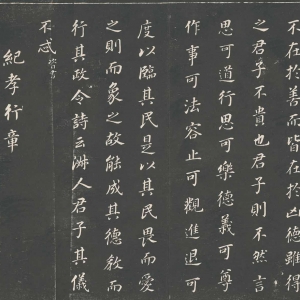 不在於善而皆在於凶德雖得
之君子不貴也君子則不然言
思可道行思可樂德義可尊
作事可法容止可觀進退可
度以臨其民是以其民畏而愛
之則而象之故能成其德教而
行其政令詩云淑人君子其儀
不忒
紀孝行章